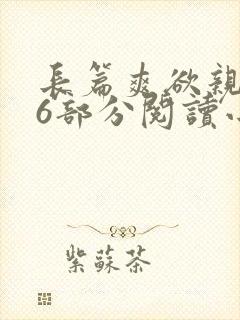 長篇爽欲親
6部分閱讀
紫蘇茶